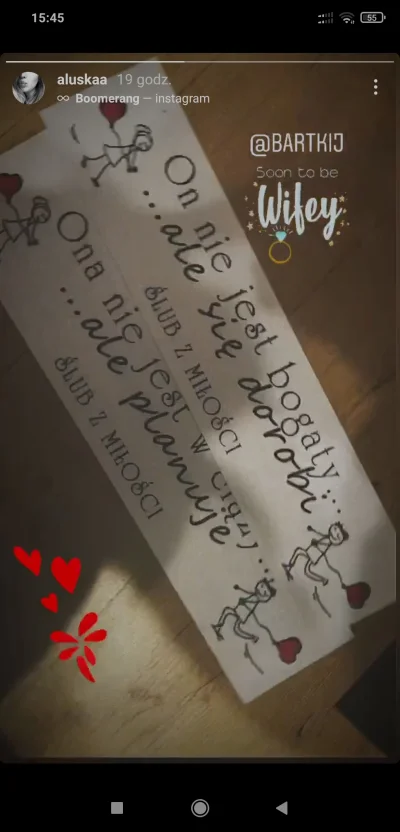 15:45
55
aluskaa 19 godz.
∞ Boomerang — instagram
@BARTKIJ
Soon to be
Wifey
On nie jest bogaty...
...ale się dorobi
ŚLUB Z MIŁOŚCI
Ona nie jest w ciąży...
...ale planuje
ŚLUB Z MIŁOŚCI